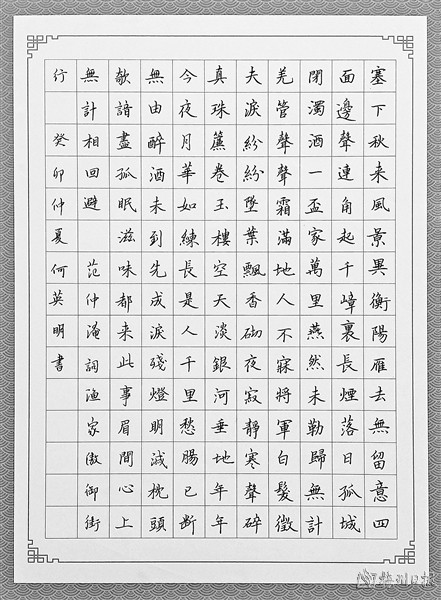 塞下秋来風景異衡陽雁去無留意四
面邊聲連角起千嶂裏長煙落日孤城
閉濁酒一盃家萬里燕然未勒歸無計
羌管聲聲霜滿地人不寐將軍白髮徵
夫淚紛紛墜葉飄香砌夜寂靜寒聲碎
真珠簾卷玉樓空天淡銀河垂地年年
今夜月華如練長是人千里愁腸已斷
無由醉酒未到先成淚殘燈明滅枕頭
欹諳盡孤眠滋味都来此事眉間心上
無計相回避 范仲淹詞漁家傲御街
行 癸卯仲夏何英明書